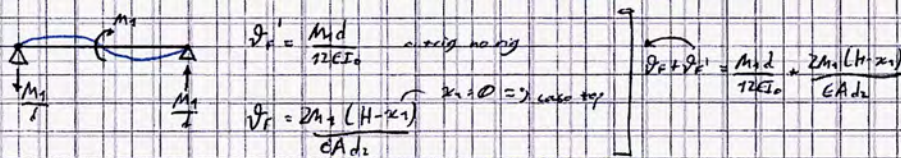 M₁
ϑF' = M₁d / 12EI₀
M₁/d M₁/d
ϑF = 2M₁(H-x₁) / EAd² x₁=0 => caso top
ϑF + ϑF' = M₁d / 12EI₀ + 2M₁(H-x₁) / EAd²